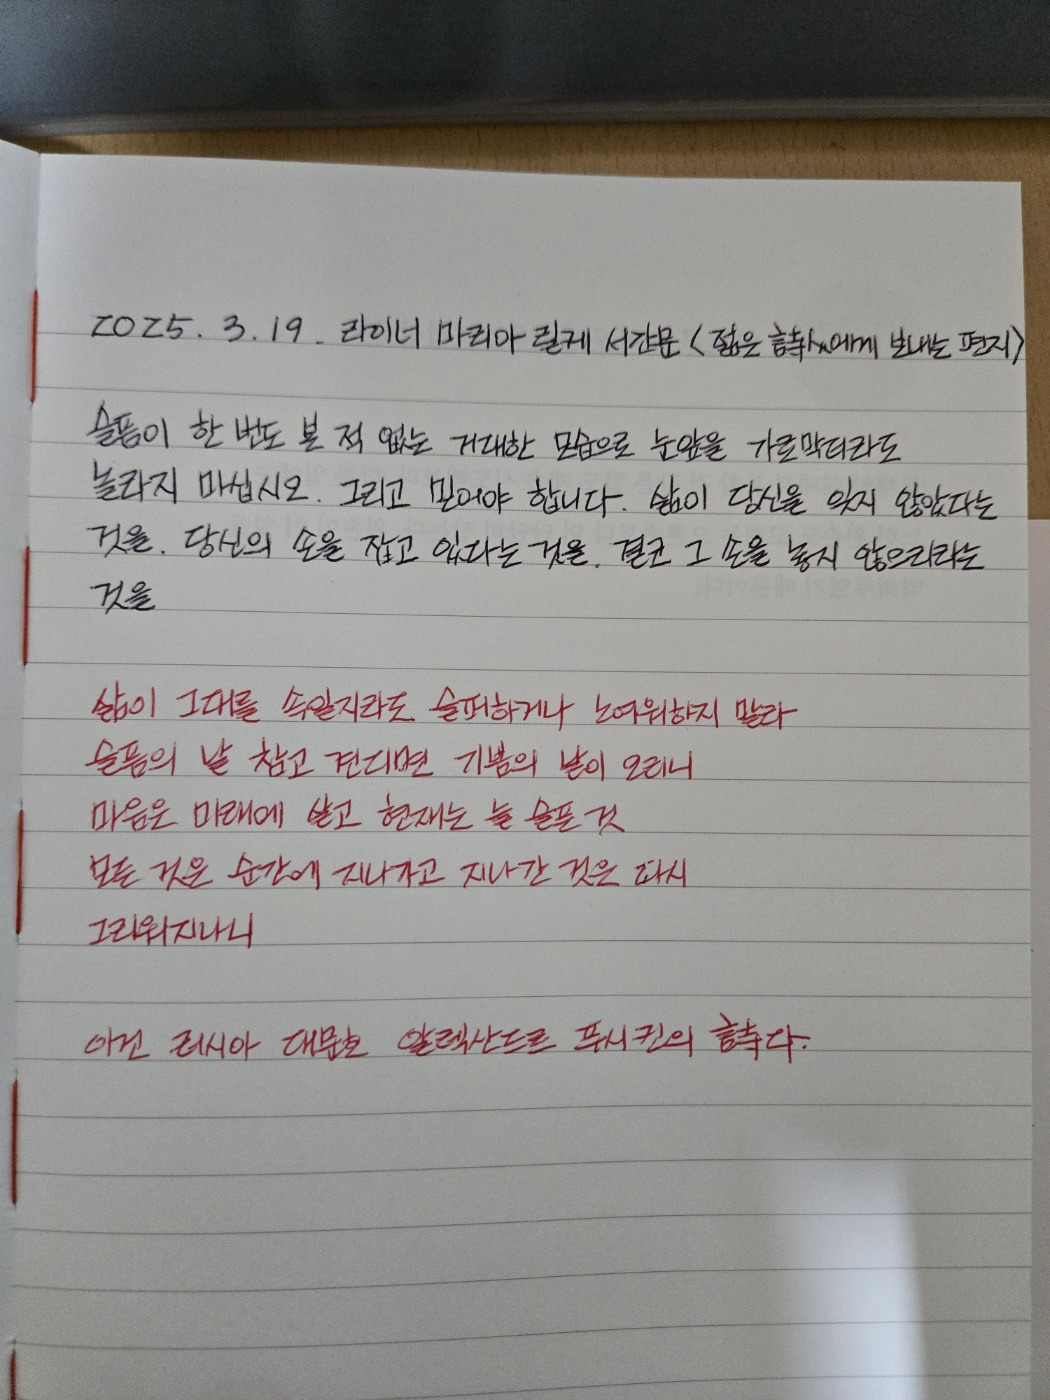 2025. 3. 19. 라이너 마리아 릴케 서간문 <젊은 詩人에게 보내는 편지>
슬픔이 한 번도 본 적 없는 거대한 모습으로 눈앞을 가로막더라도
놀라지 마십시오. 그리고 믿어야 합니다. 삶이 당신을 잊지 않았다는
것을. 당신의 손을 잡고 있다는 것을. 결코 그 손을 놓지 않으리라는
것을
삶이 그대를 속일지라도 슬퍼하거나 노여워하지 말라
슬픔의 날 참고 견디면 기쁨의 날이 오리니
마음은 미래에 살고 현재는 늘 슬픈 것
모든 것은 순간에 지나가고 지나간 것은 다시
그리워지나니
이건 러시아 대문호 알렉산드르 푸시킨의 詩다.